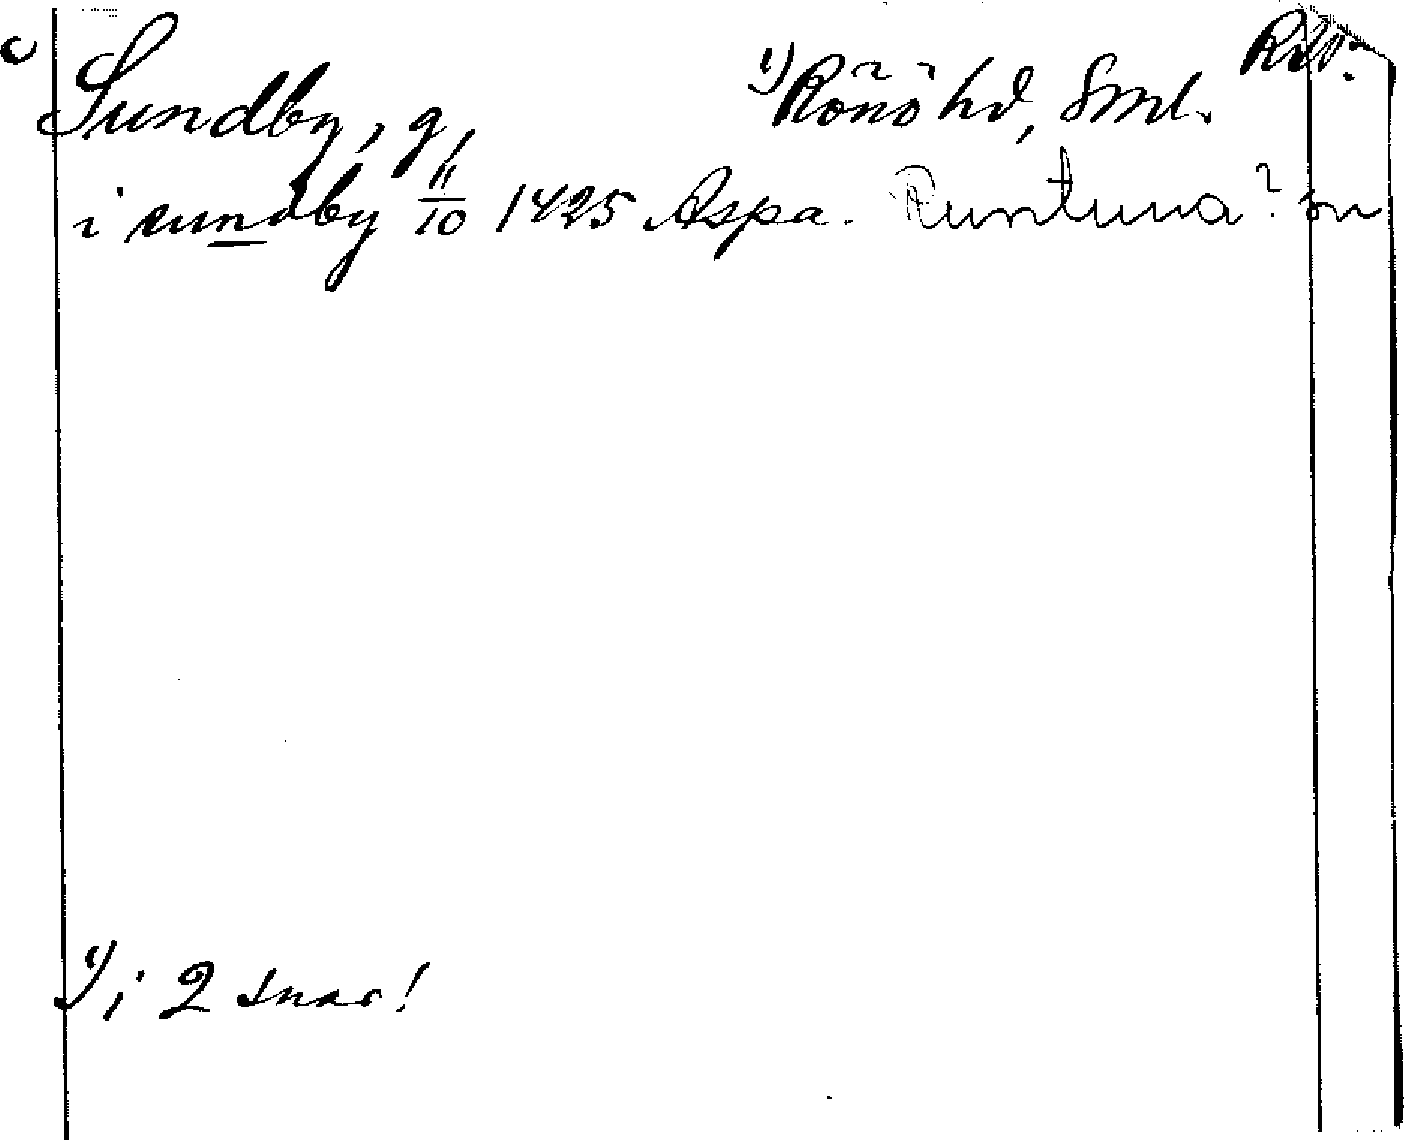 Sundby, g, 1) Rönö hd, Sml.
i sundby 11/10 1425 Aspa. Runtuna? sn
1) i 2 snar!